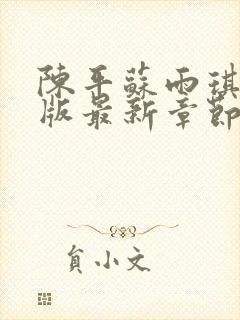 陳平蘇雨琪
版最新章節
貟小文